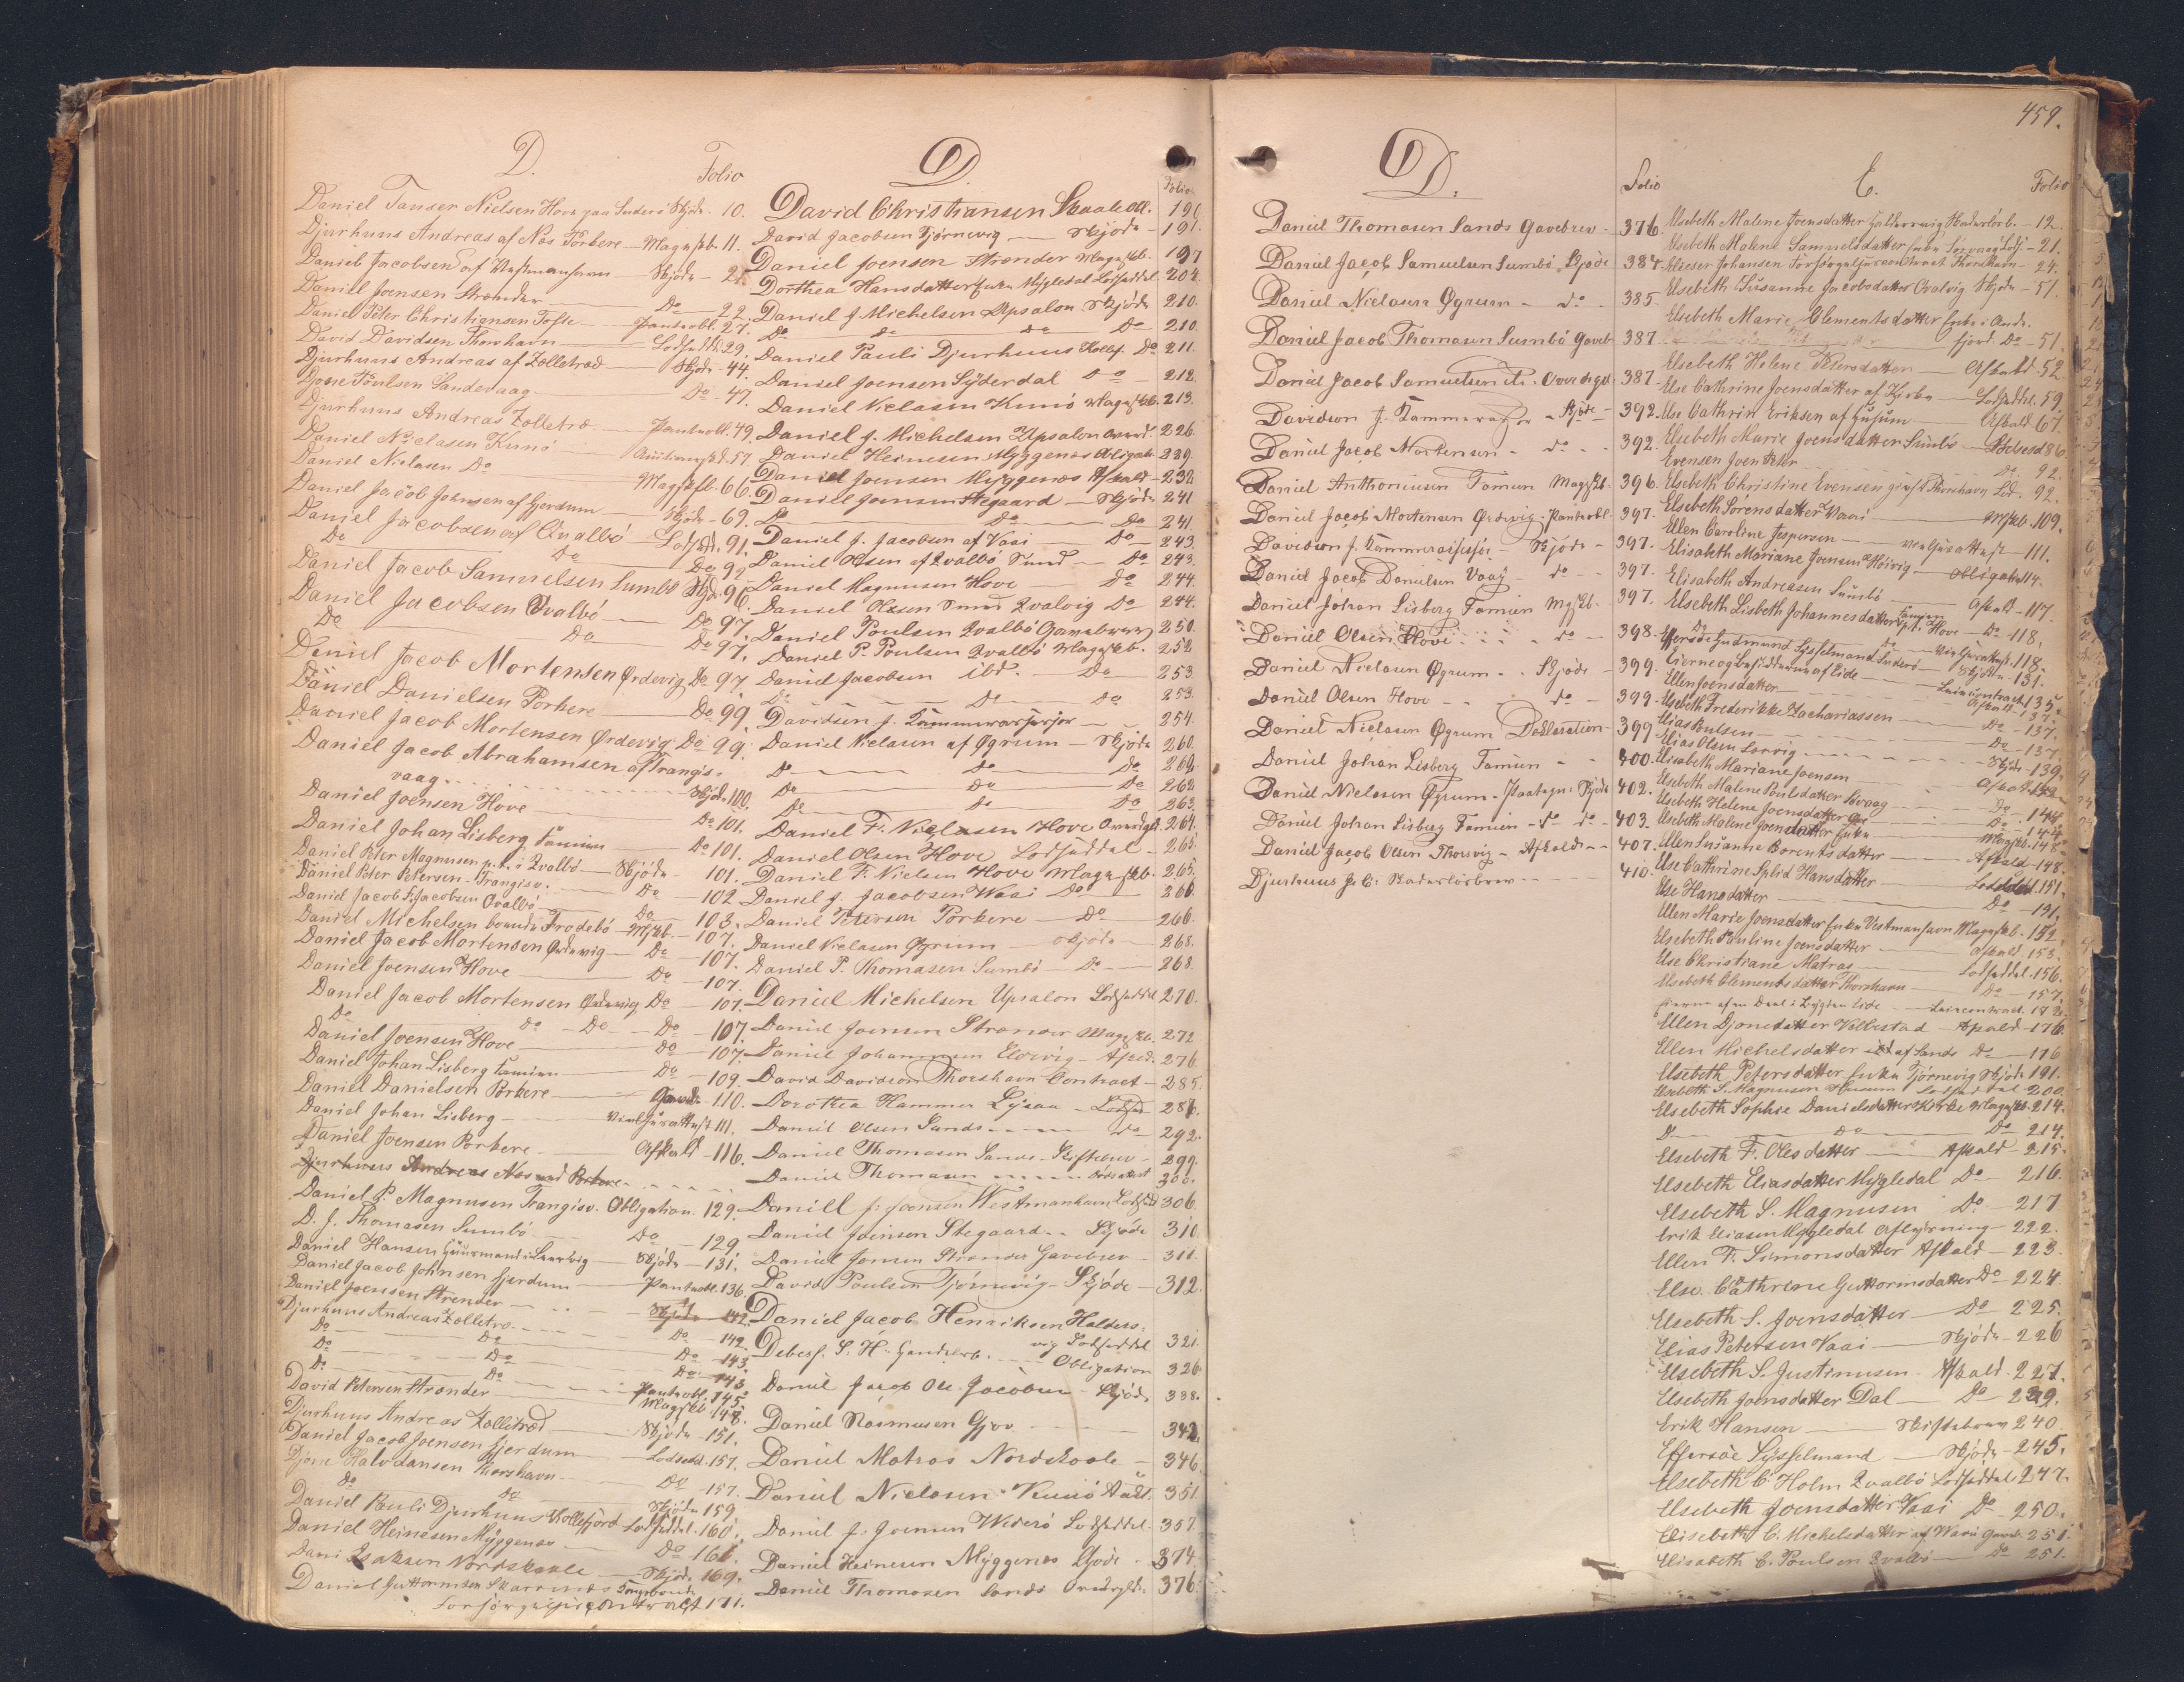 D. Folio
Daniel Tanser Nielsen Hove paa Suderö Skjöde 10.
Djurhuus Andreas af Nås Porkere Mageskb. 11.
Daniel Jacobsen af Westmanhavn Skjöde 21
Daniel Joensen Strænder Do 22.
Daniel Peter Christiansen Tofte Panteobl. 27.
David Davidsen Thorshavn Lodseddl. 29.
Djurhuus Andreas af Kolletræd Skjöde 44.
Djone Poulsen Sandevaag Do 47.
Djurhuus Andreas Kolletræ Panteobl. 49.
Daniel Niclasen Kunö Auctionsskd. 57.
Daniel Niclasen Do Magskfb. 66.
Daniel Jacob Johnsen af Gjerdum Skjöde 69.
Daniel Jacobsen af Qvalbö Lodsedd. 91.
Do Do Do 92
Daniel Jacob Samuelsen Sumbö Skjöde 96.
Daniel Jacobsen Qvalbö Do 97.
Do Do Do 97.
Daniel Jacob Mortensen Ördevig Do 97
Daniel Danielsen Porkere Do 99.
Daniel Jacob Mortensen Ördevig Do 99.
Daniel Jacob Abrahamsen af Trangis-
vaag Skjöde 100.
Daniel Joensen Hove Do 101.
Daniel Johan Lisberg Famien Do 101.
Daniel Peter Magnusen p.t. i Qvalbö Skjöde 101.
Daniel Peter Petersen Trangisv. Do 102
Daniel Jacob F. Jacobsen Qvalbö Do 103.
Daniel Michelsen boende Frodebö Mgskb. 107.
Daniel Jacob Mortensen Ördevig Do 107.
Daniel Joensen Hove Do 107.
Daniel Jacob Mortensen Ördevig Do 107.
Do Do Do Do 107.
Daniel Joensen Hove Do 107.
Daniel Johan Lisberg Famien Do 109.
Daniel Danielsen Porkere Gaveb. 110.
Daniel Johan Lisberg Vielseattest 111.
Daniel Joensen Porkere Afkald 116.
Djurhuus Andreas Næs ved Porkere
Daniel P. Magnusen Trangisv. Obligation. 129.
D. J. Thomasen Sumbö Do 129
Daniel Hansen Huusmand i Saxrvig Skjöde 131.
Daniel Jacob Johnsen Gjerdum Panteobl. 136.
Daniel Joensen Strender Skjöde 142
Djurhuus Andreas Kolletræ Do 142.
Do Do Do 143.
Do Do Do 143
Do Do Panteobl. 145.
David Petersen Strænder Magskb. 148.
Djurhuus Andreas Kolletræd Skjöde 151.
Daniel Jacob Joensen Gjerdum Lodsedd. 157.
Djone Halvdansen Thorshavn Do 157.
Do Do Skjöde 159
Daniel Pauli Djurhuus Kollefjord Lodseddel. 160.
Daniel Heinesen Myggenæs Do 161.
Dani Isaksen Nordskaale Skjöde 169.
Daniel Guttormsen Skarrenæs
Forsørgelsescontract 171.
D. Folio
David Christiansen Skaale Obl. 190
David Jacobsen Tjørnevig Skjöde 191.
Daniel Joensen Strænder Mageskb. 197
Dorthea Hansdatter Enke Mygledal Lodseddel 204.
Daniel J Michelsen Upsalon Skjöde 210.
Do Do Do Do 210
Daniel Pauli Djurhuus Kollef. Do 211.
Daniel Joensen Syderdal Do 212.
Daniel Niclasen Kunö Mageskb. 213.
Daniel J. Michelsen Upsalon Overd. 226
Daniel Heinesen Myggenæs Obligat. 229.
Daniel Joensen Myggenæs Afkald 232.
Daniel Joensen Stegaard Skjöde 241
Do Do Do 241.
Daniel J. Jacobsen af Vaai Do 243
Daniel Olsen af Qvalbö Sund Do 243.
Daniel Magnusen Hove Do 244.
Daniel Olsen Sund Qvalvig Do 244.
Daniel Poulsen Qvalbö Gavebrev 250.
Daniel P. Poulsen Qvalbö Mageskb. 252
Daniel Jacobsen ibd. Do 253
Do Do Do 253.
Davidsen J. Kammerassesor 254.
Daniel Niclasen af Øgrum Skjöde 260.
Do Do Do 262.
Do Do Do 262
Do Do Do 263.
Daniel F. Niclasen Hove Overdgd. 264.
Daniel Olsen Hove Lodseddel 265.
Daniel F. Nielsen Hove Mageskb. 265.
Daniel J. Jacobsen Waai Do 266
Daniel Petersen Porkere Do 266.
Daniel Niclasen Øgrum Skjöde 268.
Daniel P. Thomasen Sumbö Do 268.
Daniel Michelsen Upsalon Lodseddel 270.
Daniel Joensen Strænder Magskb. 272
Daniel Johannesen Elduvig Afked. 276.
David Davidsen Thorshavn Contract 285.
Dorothea Hammer Lysaa Lodsed. 286.
Daniel Olsen Sands do 292.
Daniel Thomasen Sands Skiftebrev 299.
Daniel Thomasen Dødsattest 300.
Daniell J. Joensen Westmanhavn Lodsedd 306.
Daniel Joensen Stegaard Skjöde 310
Daniel Jensen Strænder Gavebrev 311.
David Poulsen Tjörnevig Skjöde 312.
Daniel Jacob Henriksen Haldors-
vig Lodseddel 321.
Debesf. S. H. Handelsb. Obligation 326.
Daniel Jacob Ole Jacobsen Skjöde 338.
Daniel Rasmusen Gjov 342.
Daniel Matras Nordskaale 346.
Daniel Niclasen Kunö 351.
Daniel J. Joensen Widerö Lodseddel. 357.
Daniel Heinesen Myggenæs Skjöde 374.
Daniel Thomasen Sands Overdgld. 376.
459.
D. Folio
Daniel Thomasen Sands Gavebrev 376.
Daniel Jacob Samuelsen Sumbö Skjöde 384.
Daniel Niclasen Øgrum do 385.
Daniel Jacob Thomasen Sumbö Gaveb 387.
Daniel Jacob Samuelsen ib. Overdrgd 387.
Davidsen J. Kammerassor Skjöde 392.
Daniel Jacob Mortensen do 392.
Daniel Anthoniusen Famien Magskb. 396.
Daniel Jacob Mortensen Ördevig Panteobl. 397.
Davidsen J. Kammerassessor Skjöde 397.
Daniel Jacob Danielsen Vaag do 397.
Daniel Johan Lisberg Famien Mgskb. 397.
Daniel Olsen Hove do 398.
Daniel Niclasen Øgrum Skjöde 399.
Daniel Olsen Hove do 399.
Daniel Niclasen Øgrum Deklaration 399
Daniel Johan Lisberg Famien 400.
Daniel Niclasen Øgrum Paategn. Skjöde 402.
Daniel Johan Lisberg Famien do do 403.
Daniel Jacob Olsen Thorsvig Afkald 407.
Djurhuus J. C: Kaderløsbrev 410.
E. Folio
Elsebeth Malene Joensdatter Haldersvig Skaderlösb. 12.
Elsebeth Malene Samuelsdatter Enke Lods. 21.
Elieser Johansen Forsørgelsescontract Thorshavn 24.
Elsebeth Susanne Jacobsdatter Qvalvig Skjöde 51.
Elsebeth Marie Clementsdatter Enke i Ande-
fjord. Do 51.
Elsebeth Helene Petersdatter Afkald 52.
Else Cathrine Joensdatter af Kjerbe Lodseddel. 59.
Else Cathrin Eriksen af Husum Afkald 67.
Elsebeth Marie Joensdatter Sumbö 86
Evensen Joen Peter Do 92.
Elsebeth Christine Evensen gift Thorshavn Lod. 92.
Elsebeth Sörensdatter Vaai Mgskb. 109.
Ellen Caroline Jespersen Vielseattest 111.
Elisabeth Mariane Joensen Hoivig Obligat. 114.
Elisabeth Andreasen Sumbö Afkald 117.
Elsebeth Lisbeth Johannesdatter Famien p.t. Hove Do 118.
Do Do Vielseattest. 118.
Effersöe Gudmund Sysselmand Suderö Skjöde 131.
Eierne og Besidderne af Eide Leiecontract 135.
Ellen Joensdatter Afkald 137.
Elsebeth Frederikke Zachariassen Do 137.
Elias Poulsen Do 137
Elias Olsen Lorvig Skjöde 139.
Elisabeth Mariane Joensen Afkald 142
Elsebeth Malene Poulsdatter Sörvaag Do 144
Elsebeth Helene Joensdatter Do 144.
Elsebeth Malene Joensdatter Enke Mageskb. 148.
Ellen Susanne Borentsdatter Afkald 148.
Else Cathrine Sybid Hansdatter Lodseddel. 151.
Else Hansdatter Do 151.
Ellen Marie Joensdatter Enke Vestmanhavn Mageskb. 152.
Elsebeth Pauline Joensdatter Afkald. 153.
Else Christiane Matras Lodseddel. 156.
Elsebeth Clementsdatter Thorshavn Do 157.
Eierne af en Deel i Bygden Eide Leiecontract. 172.
Ellen Djonedatter Vellestad Afkald 176.
Ellen Michelsdatter af Sands Do 176
Elsebeth Petersdatter Enke Tjørnevig Skjöde 191.
Elsebeth S. Magnusen Husum Lodseddel 200.
Elsebeth Sophie Danielsdatter Kirke Mageskb. 214.
D Do Do 214.
Elsebeth F. Olesdatter Afkald 215.
Elsebeth Eliasdatter Mygledal Do 216.
Elsebeth S. Magnusen Do 217
Erik Eliasen Mygledal Aflysning 222.
Ellen F. Simonsdatter Afkald 223.
Else Cathrine Guttormsdatter Do 224
Elsebeth S. Joensdatter Do 225.
Elias Petersen Vaai Skjöde 226
Elsebeth S. Justinusen Afkald. 227.
Elsebeth Joensdatter Dal Do 239.
Erik Hansen Skiftebrev 240.
Effersöe Sysselmand Skjöde 245.
Elsebeth C. Holm Qvalbö Lodseddel 247.
Elsebeth Joensdatter Vaai Do 250.
Elisebeth C. Michelsdatter af Waai Gaveb. 251.
Elisabeth C. Poulsen Qvalbö Do 251.